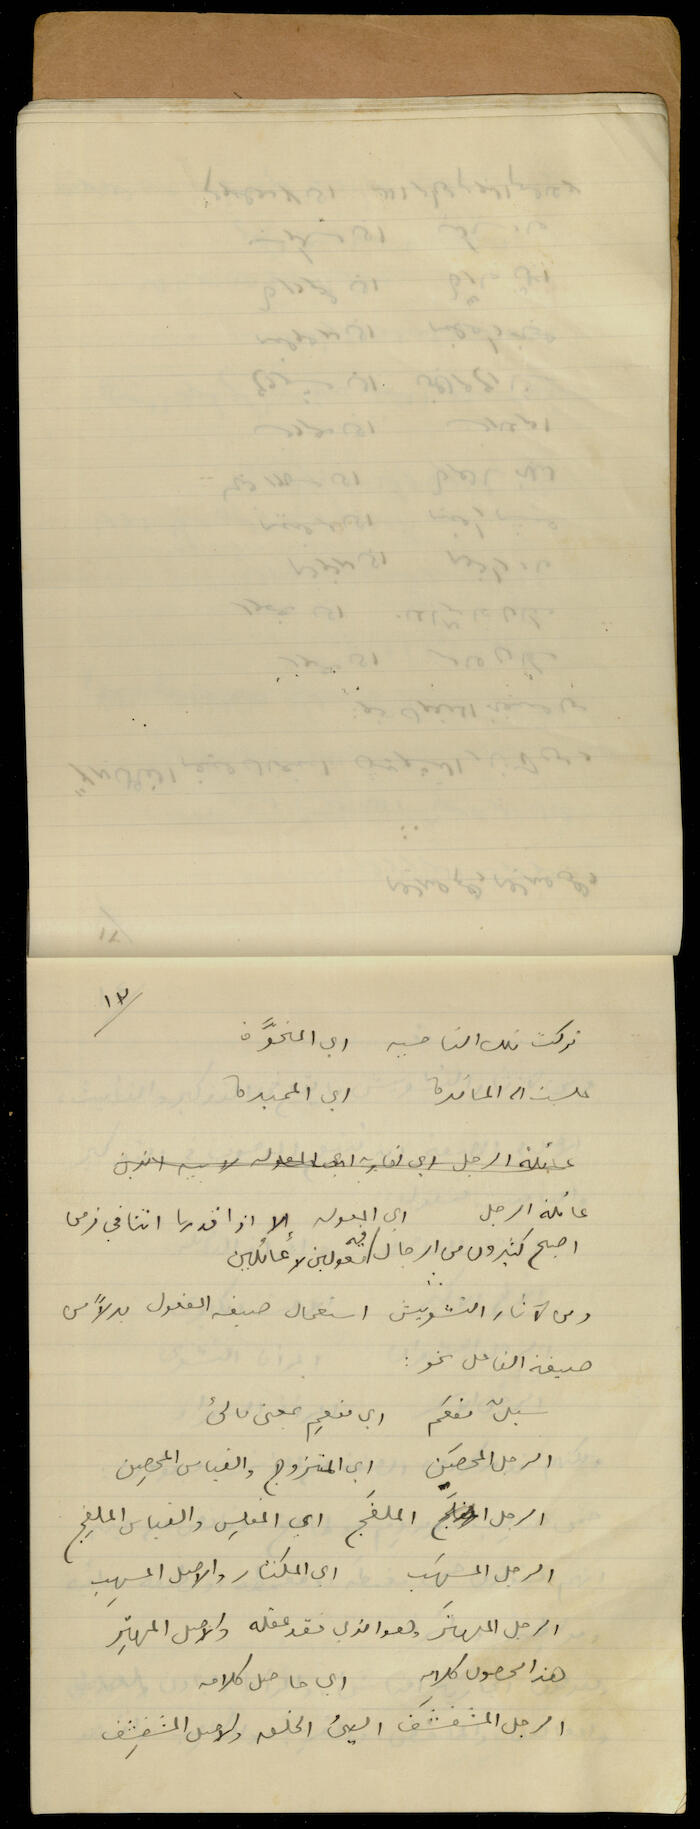 ١٣
تركت تلك الناحية اي المنحوَّة
جلست الى المائدة اي المميدة
عائلة الرجل اي المعولة
عائلة الرجل اي المعولة الا اذا قدرها اننا في زمن
اصبح كثيرون من الرجال فيه مَعُولين لا عائلين
ومن آثار التشويش استعمال صيغة المفعول بدلاً من
صيغة الفاعل نحو :
سيلٌ مفعَم اي مفعِم بمعنى مالئ
الرجل المحصَن اي المتزوج والقياس المحصِن
الرجل الملفَج اي المفلس والقياس الملفِج
الرجل المسهَب اي المكثار والاصل المسهِب
الرجل المهتَر وهو الذي فقد عقله والاصل المهتِر
هذا محصول كلامه اي حاصل كلامه
الرجل المشفشَف السيئ الخلق والاصل المشفشِف